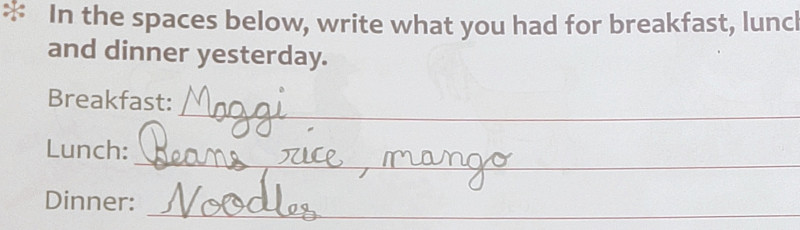 * In the spaces below, write what you had for breakfast, lunch
and dinner yesterday.
Breakfast: Maggi
Lunch: Beans, rice, mango
Dinner: Noodles